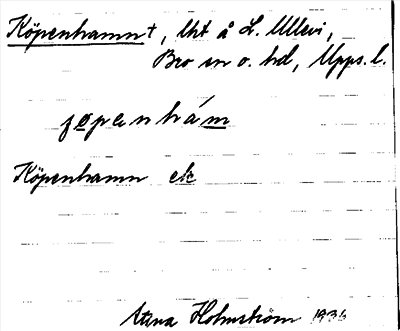 Köpenhamn†, lht å L. Ullevi,
Bro sn o. hd, Upps. l.
jøpenhám
Köpenhamn ek
Stina Holmström 1936